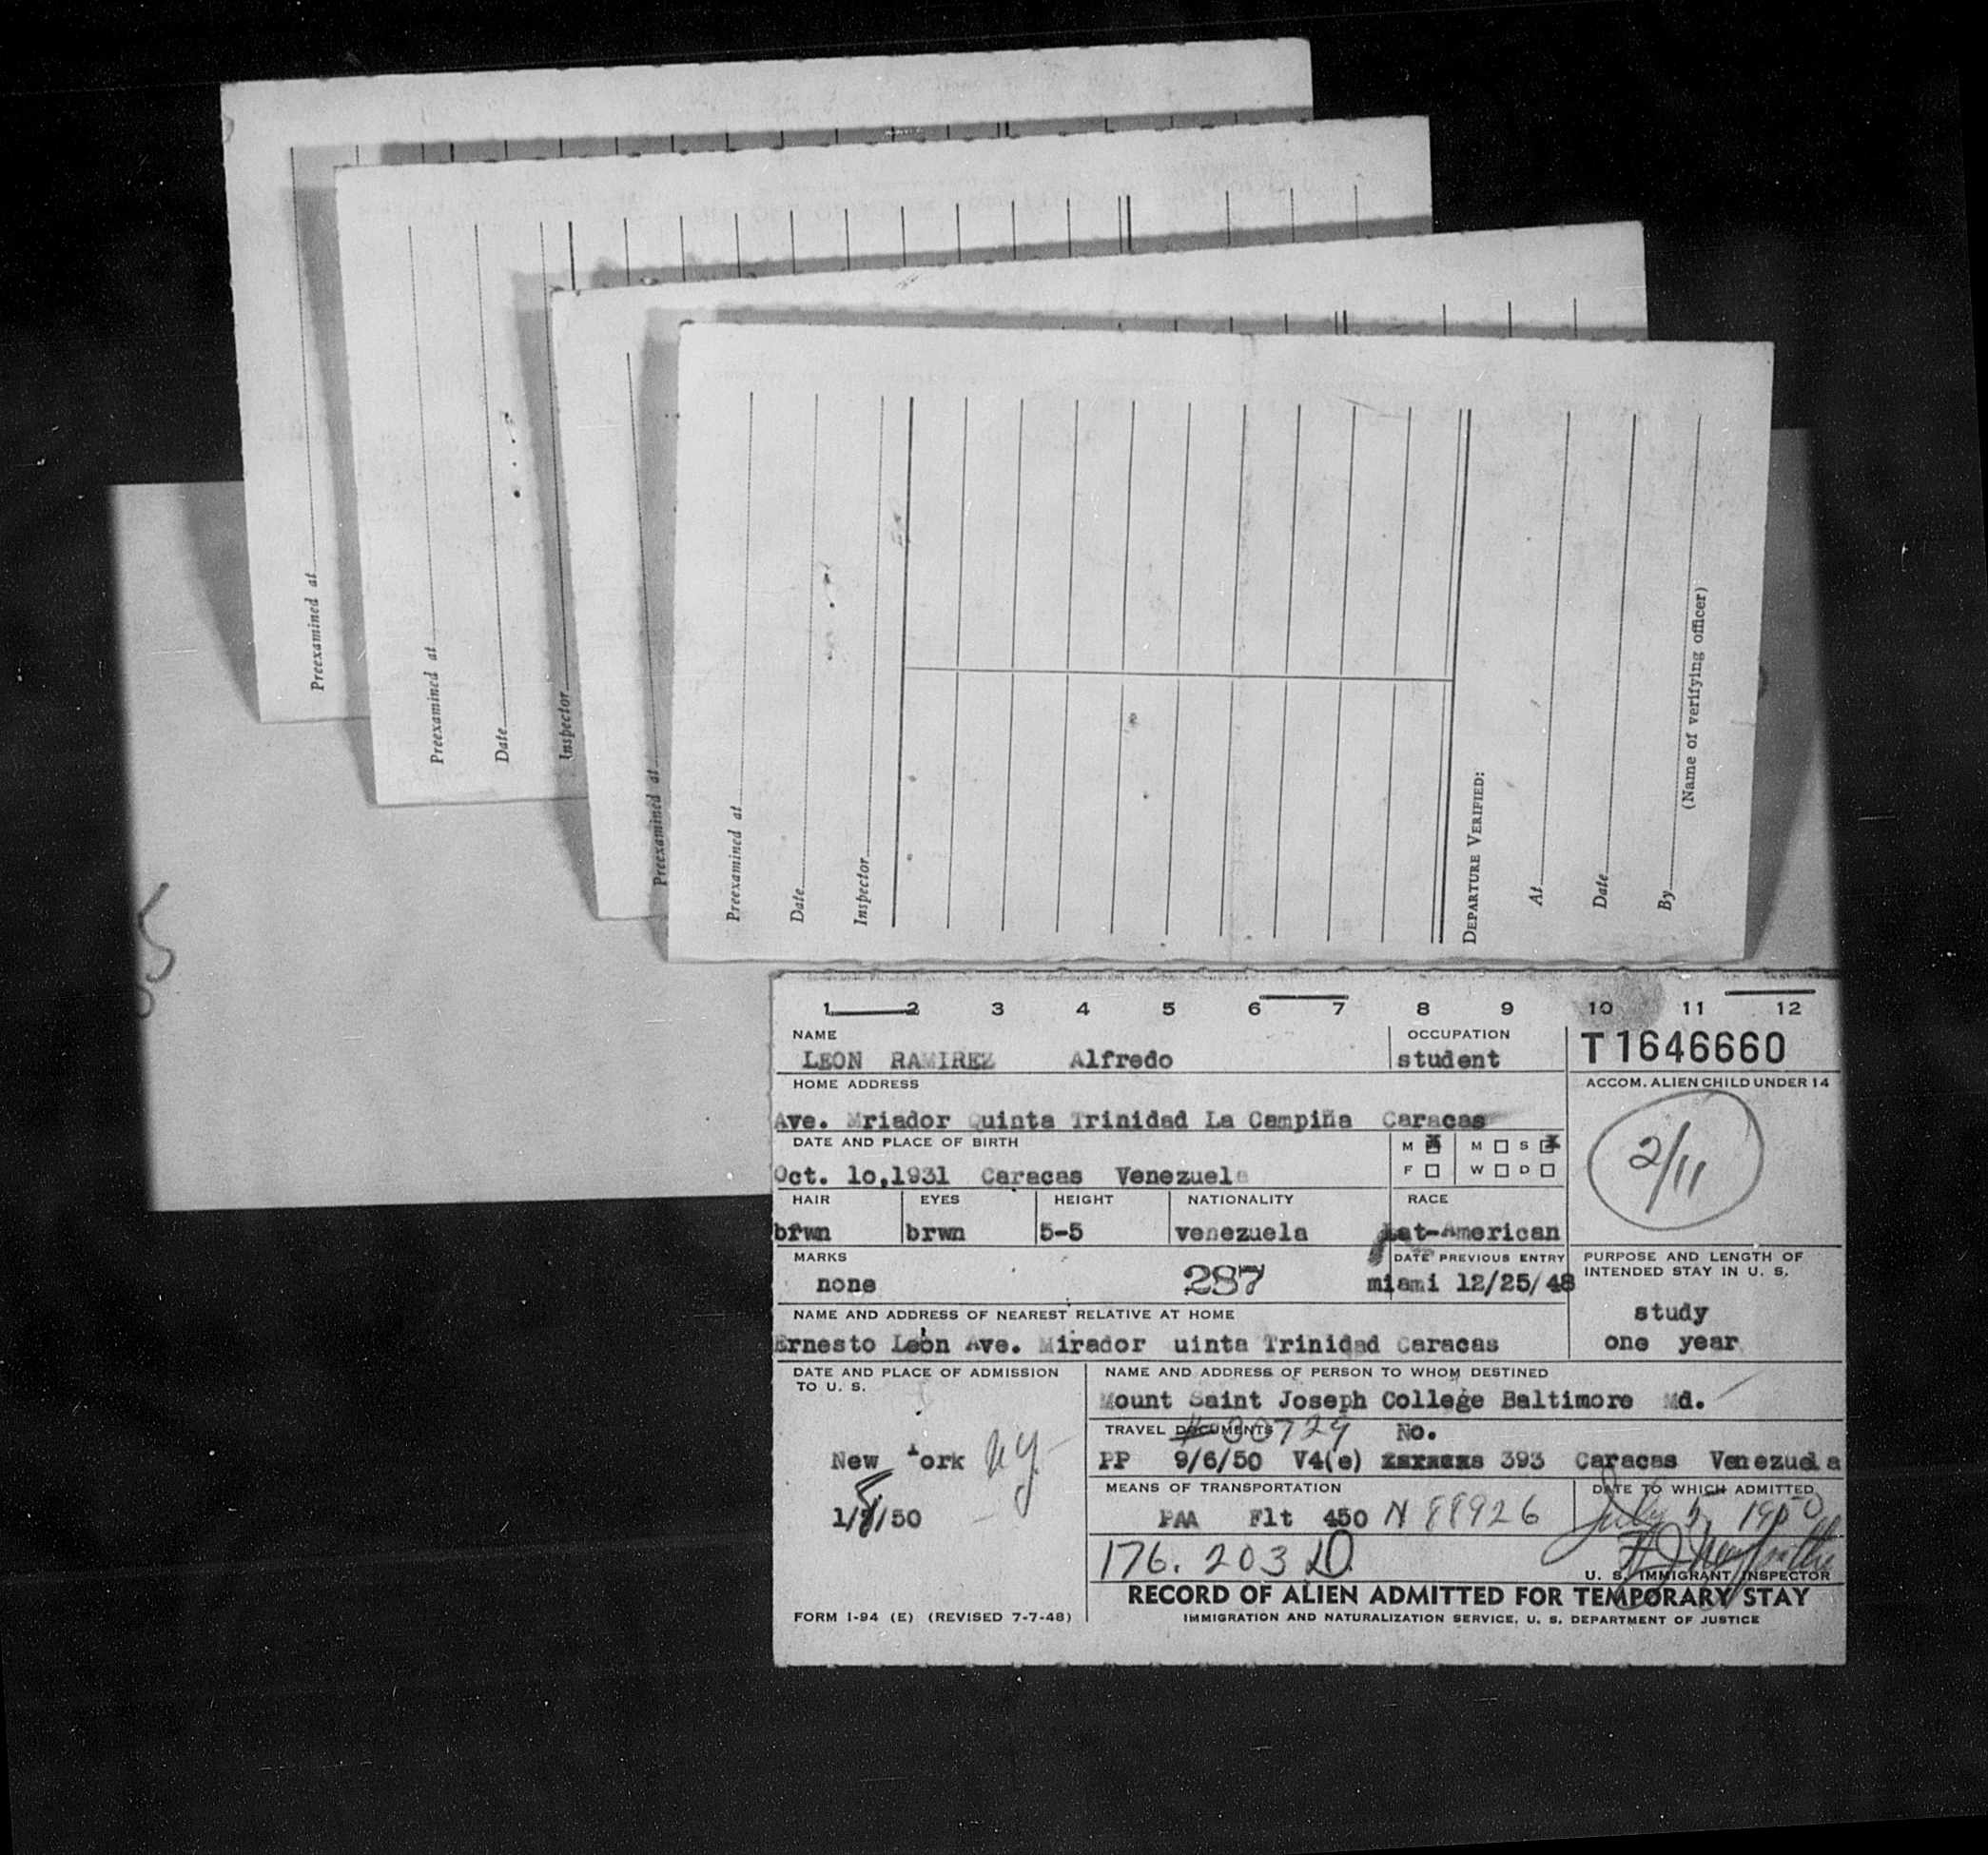 Preexamined at
Preexamined at
Date
Inspector
Preexamined at
Preexamined at
Date
Inspector
DEPARTURE VERIFIED:
At
Date
By
(Name of verifying officer)
5
1 2 3 4 5 6 7 8 9 10 11 12
NAME OCCUPATION T1646660
LEON RAMIREZ Alfredo student
HOME ADDRESS ACCOM. ALIEN CHILD UNDER 14
Ave. Mriador Quinta Trinidad La Campiña Caracas
2/11
DATE AND PLACE OF BIRTH M X M S X
Oct. 1o,1931 Caracas Venezuela F W D
HAIR EYES HEIGHT NATIONALITY RACE
brwn brwn 5-5 venezuela Lat-American
MARKS DATE PREVIOUS ENTRY PURPOSE AND LENGTH OF
INTENDED STAY IN U. S.
none 287 miami 12/25/48
study
NAME AND ADDRESS OF NEAREST RELATIVE AT HOME
Ernesto León Ave. Mirador uinta Trinidad Caracas one year
DATE AND PLACE OF ADMISSION
TO U. S.
NAME AND ADDRESS OF PERSON TO WHOM DESTINED
Mount Saint Joseph College Baltimore Md.
TRAVEL DOCUMENTS #00729 No.
New York NY PP 9/6/50 V4(e) 393 Caracas Venezuela
MEANS OF TRANSPORTATION DATE TO WHICH ADMITTED
1/8/50 PAA Flt 450 N 88926 July 5, 1950
176. 203 D
U. S. IMMIGRANT INSPECTOR
RECORD OF ALIEN ADMITTED FOR TEMPORARY STAY
FORM I-94 (E) (REVISED 7-7-48) IMMIGRATION AND NATURALIZATION SERVICE, U. S. DEPARTMENT OF JUSTICE